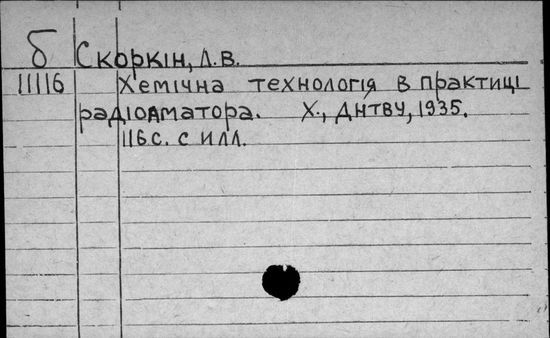 б Скоркін, Л.В.
11116 Хемічна технологія в практиці
радіоаматора. Х., ДНТВУ, 1935.
116с. с илл.